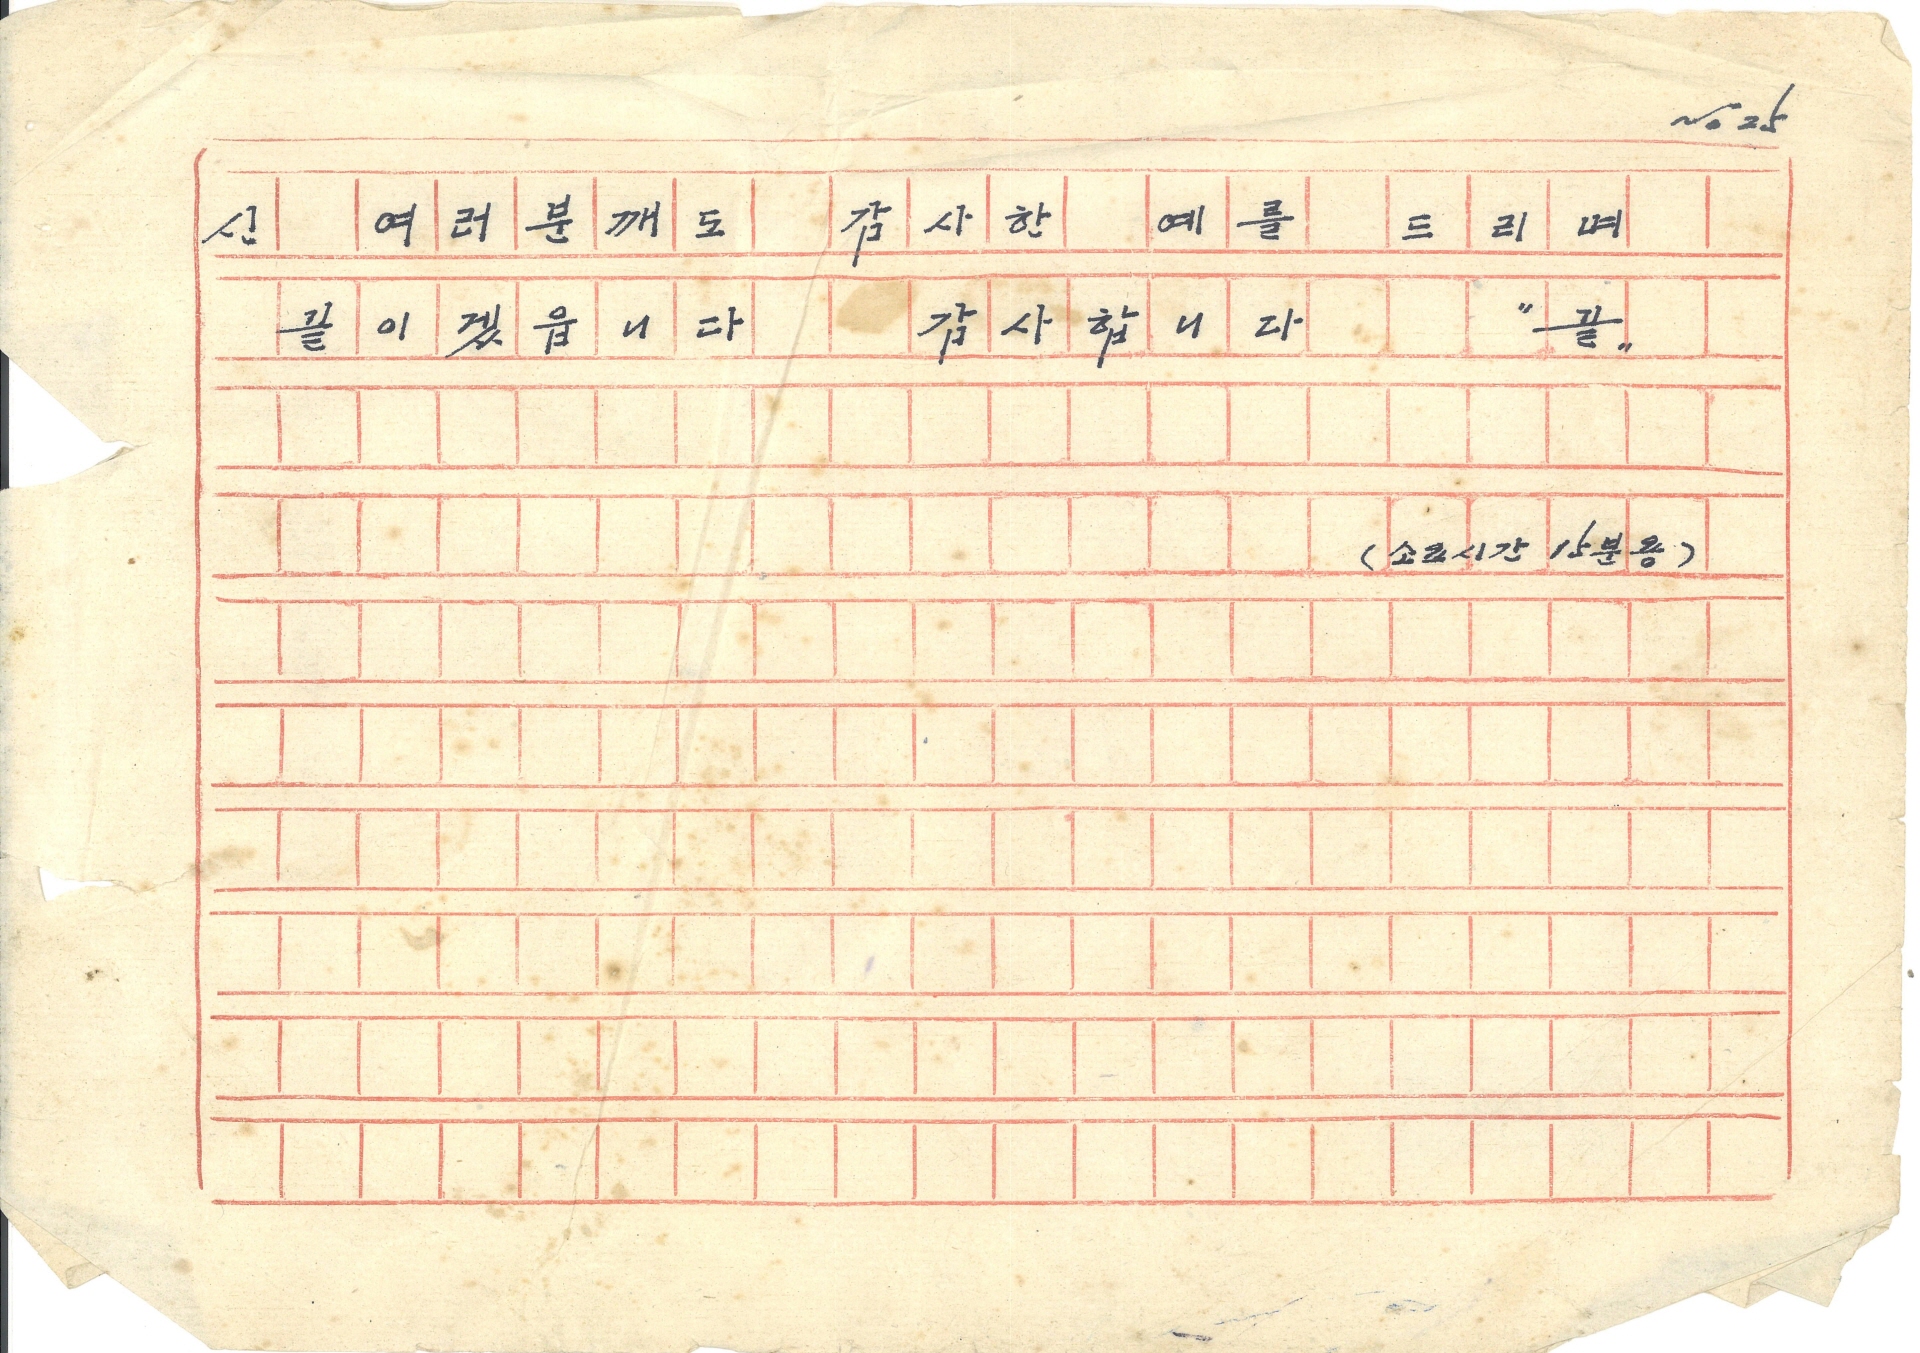 No 25
신 여러분깨도 감사한 예를 드리며
끝이겠읍니다 감사합니다 "끝"
(소요시간 15분용)